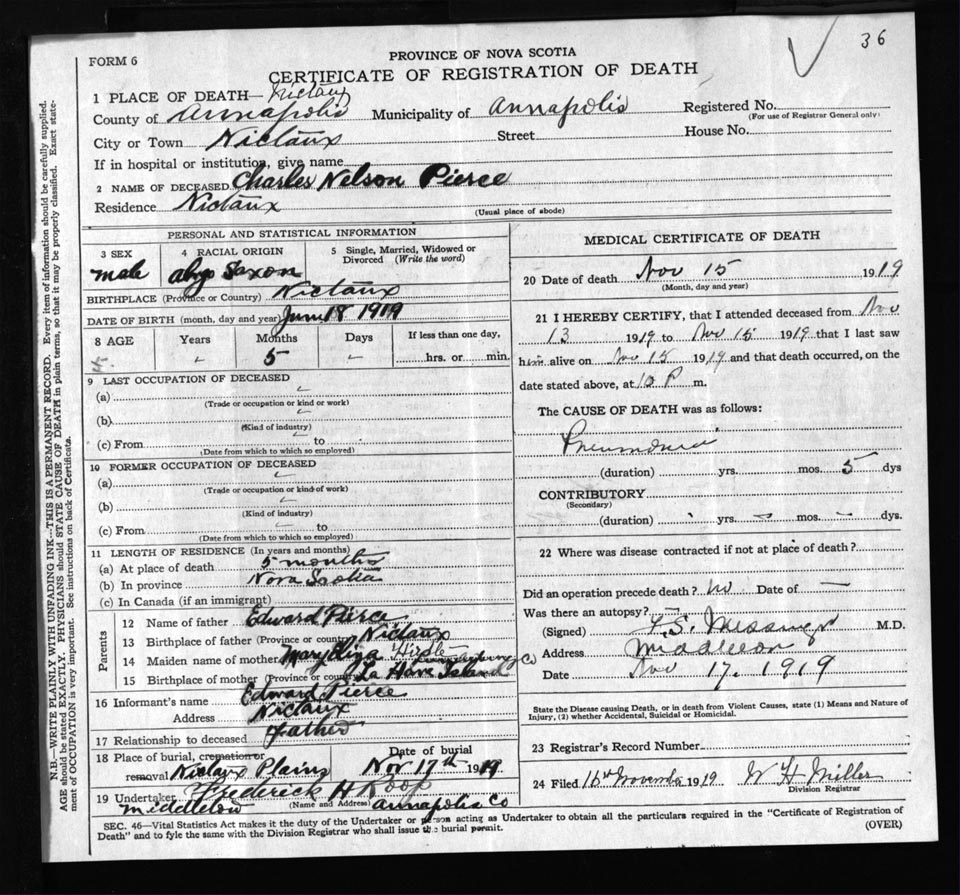 36
FORM 6
PROVINCE OF NOVA SCOTIA
CERTIFICATE OF REGISTRATION OF DEATH
1 PLACE OF DEATH— Nictaux
County of Annapolis Municipality of Annapolis Registered No.
(For use of Registrar General only)
City or Town Nictaux Street House No.
If in hospital or institution, give name
2 NAME OF DECEASED Charles Nelson Pierce
Residence Nictaux
(Usual place of abode)
PERSONAL AND STATISTICAL INFORMATION
3 SEX 4 RACIAL ORIGIN 5 Single, Married, Widowed or Divorced (Write the word)
male Saxon
BIRTHPLACE (Province or Country) Nictaux
DATE OF BIRTH (month, day and year) June 18 1919
8 AGE Years Months Days If less than one day,
5 hrs. or min.
9 LAST OCCUPATION OF DECEASED
(a)
(Trade or occupation or kind or work)
(b)
(Kind of industry)
(c) From to
(Date from which to which so employed)
10 FORMER OCCUPATION OF DECEASED
(a)
(Trade or occupation or kind of work)
(b)
(Kind of industry)
(c) From to
(Date from which to which so employed)
11 LENGTH OF RESIDENCE (In years and months)
(a) At place of death 5 months
(b) In province Nova Scotia
(c) In Canada (if an immigrant)
Parents
12 Name of father Edward Pierce
13 Birthplace of father (Province or country) Nictaux
14 Maiden name of mother Mary Eliza Hirtle
Lunenburg Co
15 Birthplace of mother (Province or country) La Have Island
16 Informant's name Edward Pierce
Address Nictaux
17 Relationship to deceased Father
18 Place of burial, cremation or removal Nictaux Plains Date of burial Nov 17th 1919
19 Undertaker Frederick H Roop
(Name and Address)
Middleton Annapolis Co
MEDICAL CERTIFICATE OF DEATH
20 Date of death Nov 15 1919
(Month, day and year)
21 I HEREBY CERTIFY, that I attended deceased from Nov
13 1919 to Nov 15 1919 that I last saw
him alive on Nov 15 1919 and that death occurred, on the
date stated above, at 10 P m.
The CAUSE OF DEATH was as follows:
Pneumonia
(duration) yrs. mos. 5 dys
CONTRIBUTORY
(Secondary)
(duration) yrs. mos. dys.
22 Where was disease contracted if not at place of death?
Did an operation precede death? No Date of
Was there an autopsy?
(Signed) F. S. Messinger M.D.
Address Middleton
Date Nov 17. 1919
State the Disease causing Death, or in death from Violent Causes, state (1) Means and Nature of
Injury, (2) whether Accidental, Suicidal or Homicidal.
23 Registrar's Record Number
24 Filed 16th November 1919 W H Miller
Division Registrar
SEC. 46—Vital Statistics Act makes it the duty of the Undertaker or person acting as Undertaker to obtain all the particulars required in the "Certificate of Registration of
Death" and to fyle the same with the Division Registrar who shall issue the burial permit. (OVER)
N.B.—WRITE PLAINLY WITH UNFADING INK—THIS IS A PERMANENT RECORD. Every item of information should be carefully supplied.
AGE should be stated EXACTLY. PHYSICIANS should STATE CAUSE OF DEATH in plain terms, so that it may be properly classified. Exact state-
ment of OCCUPATION is very important. See instructions on back of Certificate.